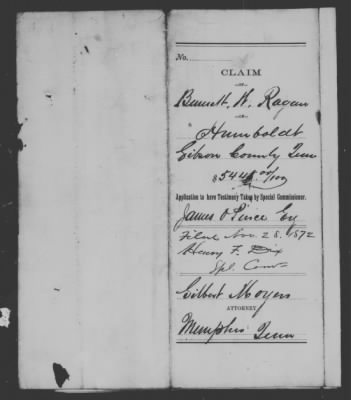 No.
CLAIM
—OF—
Bennett, W. Ragan
—OF—
Humboldt
Gibson County Tenn
$544 00/100
Application to have Testimony Taken by Special Commissioner.
James O Pierce Esq
Filed Nov. 28. 1872
Henry F. Dix
Spl. Comr
Gilbert Moyers
ATTORNEY
Memphis Tenn